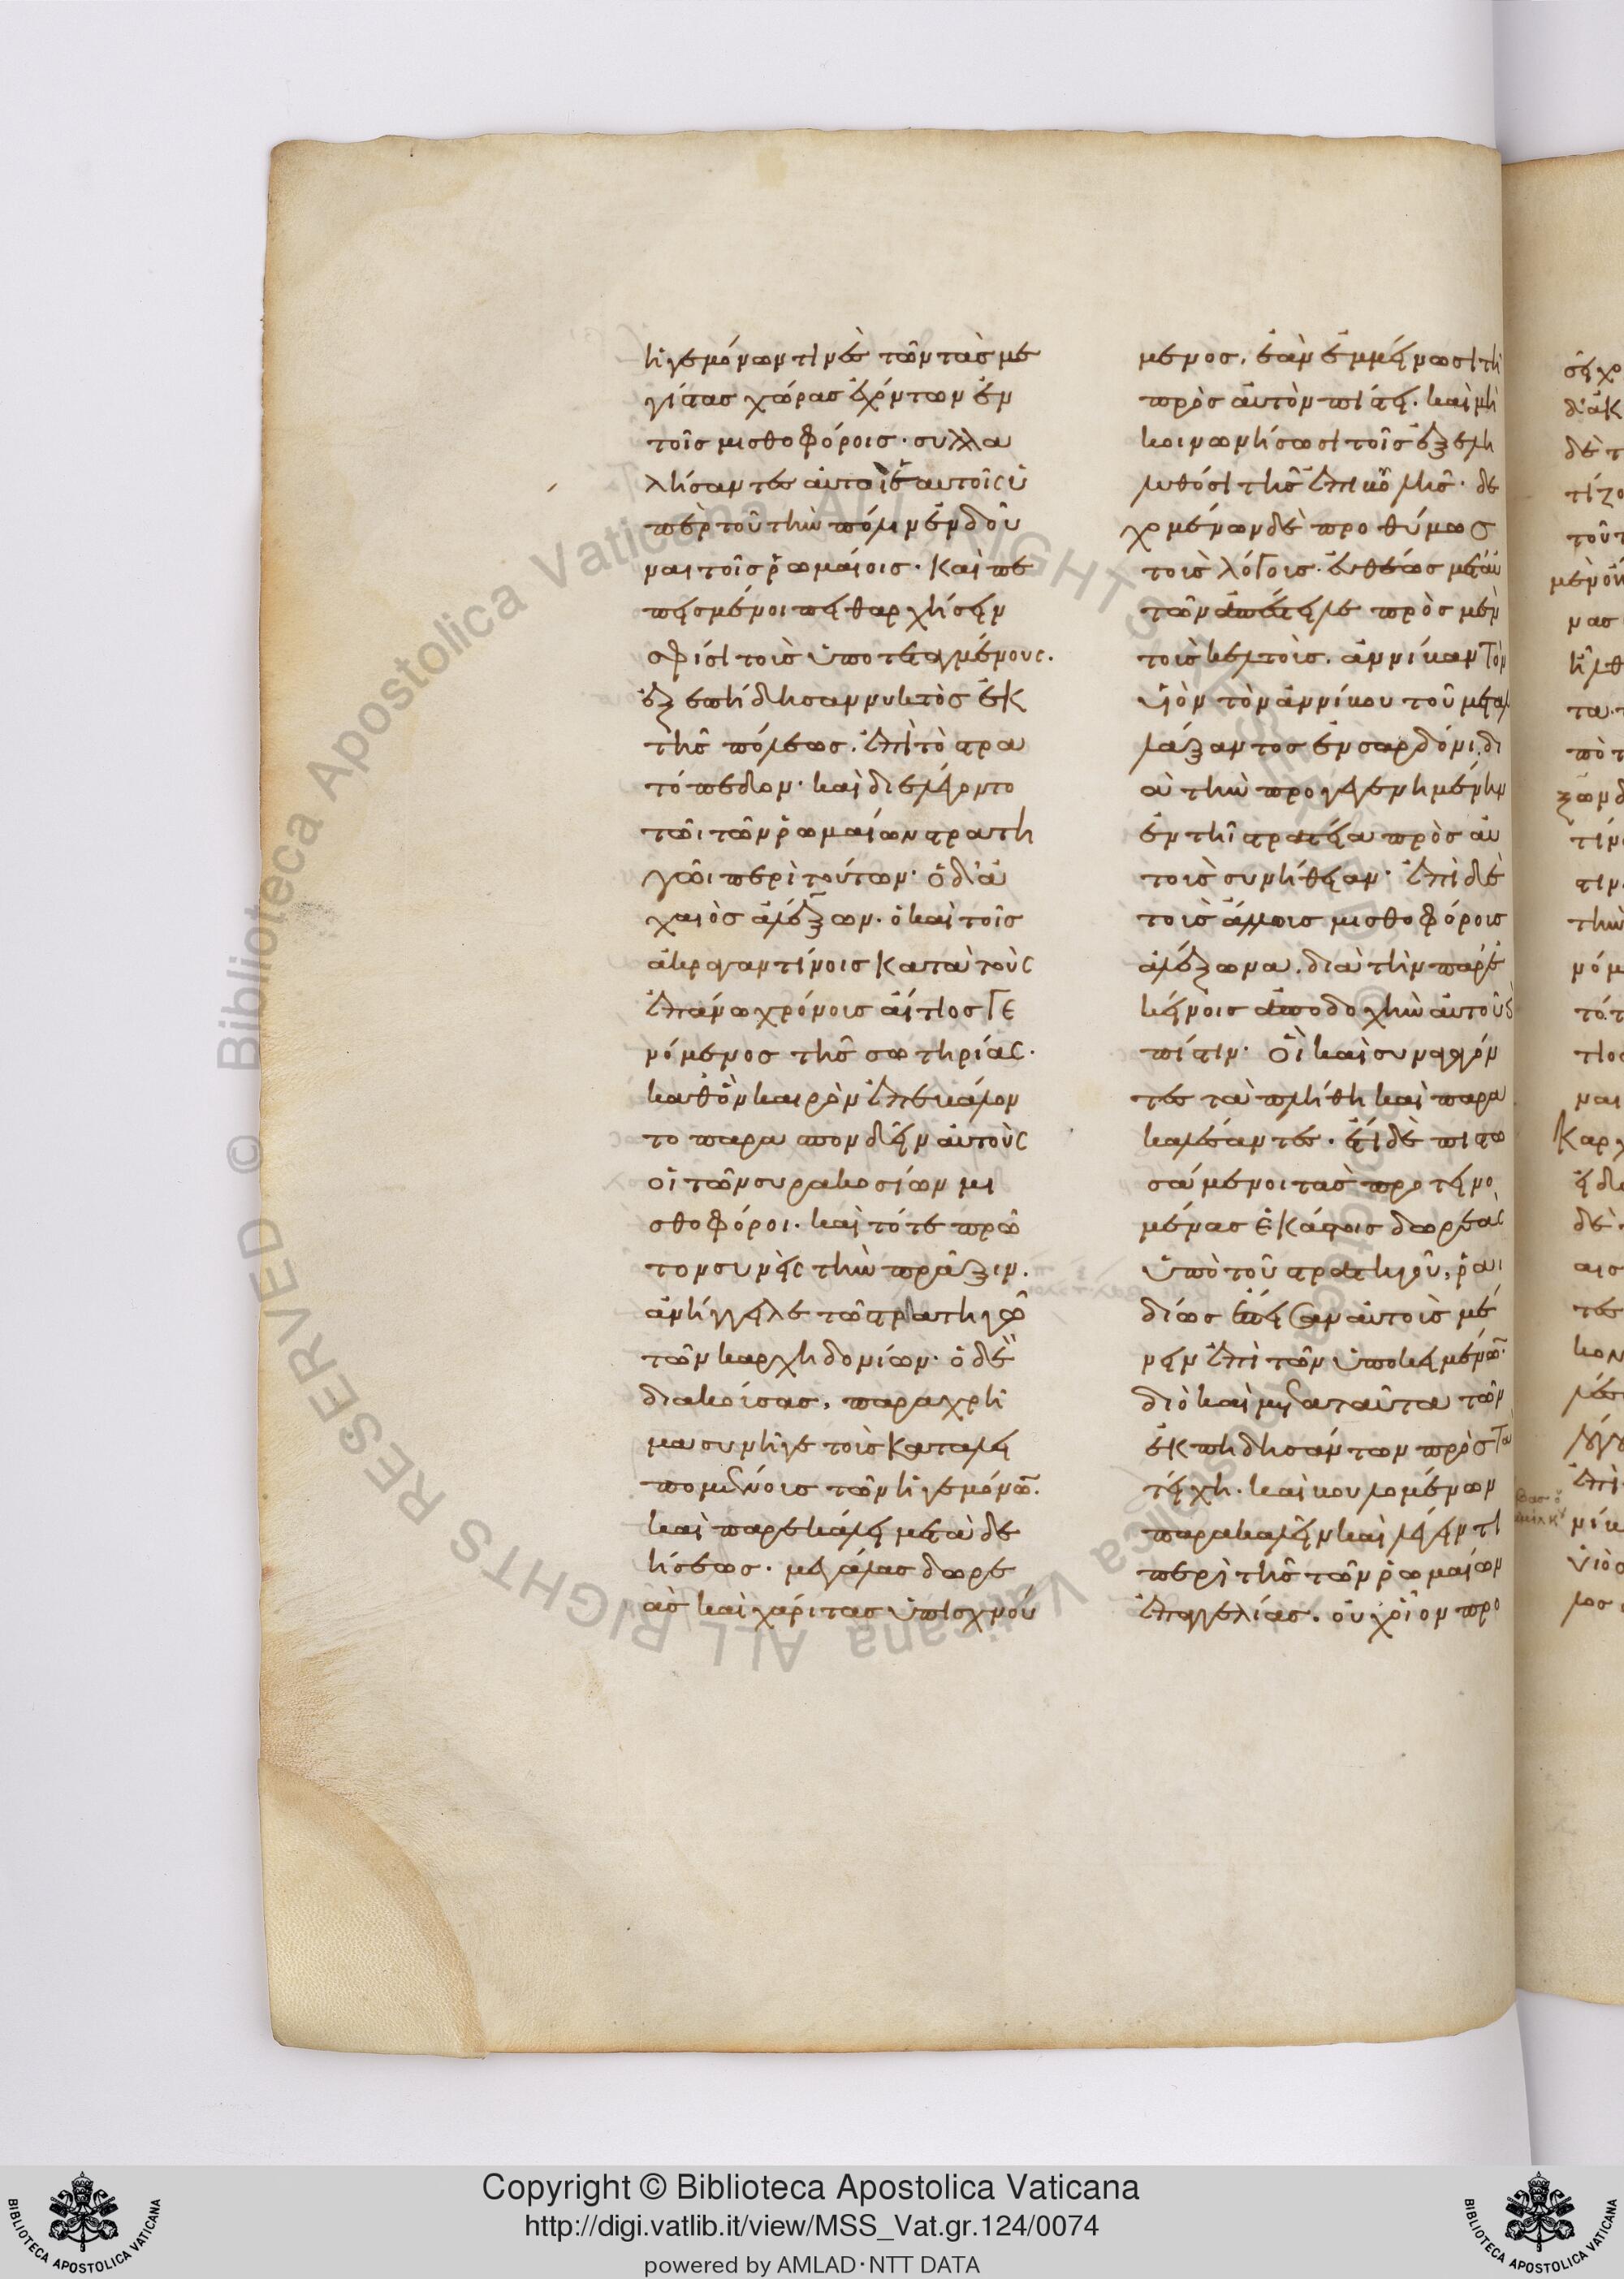 ἡγεμόνων τινὲς τῶν τὰς με
γίστας χώρας ἐχόντων ἐν
τοῖς μισθοφόροις· συλλα
λήσαντες αὑτοῖς
πὲρ τοῦ τὴν πόλιν ἐνδοῦ
ναι τοῖς ῥωμαίοις· καὶ πε
πεισμένοι πειθαρχήσειν
σφίσι τοὺς ὑποτεταγμένους.
ἐξεπήδησαν νυκτὸς ἐκ
τῆς πόλεως. ἐπὶ τὸ στρα
τόπεδον· καὶ διελέγοντο
τῶι τῶν ῥωμαίων στρατη
γῶι περὶ τούτων· ὁ δὲ ἀ
χαιὸς ἀλέξων. ὁ καὶ τοῖς
ἀκραγαντίνοις κατὰ τοὺς
ἐπάνω χρόνους αἴτιος γε
νόμενος τῆς σωτηρίας.
καθ ὃν καιρὸν ἐπεβάλον
το παρασπονδεῖν αὐτοὺς
οἱ τῶν συρακοσίων μι
σθοφόροι. καὶ τότε πρῶ
τον συνεὶς τὴν πρᾶξιν.
ἀνήγγειλε τῶ στρατηγῶ
τῶν καρχηδονίων· ὁ δὲ
διακούσας, παραχρῆ
μα συνῆγε τοὺς καταλει
πομένους τῶν ἡγεμόνων.
καὶ παρεκάλει μετὰ δε
ήσεως· μεγάλας δωρε
ὰς καὶ χάριτας ὑπισχνού
μενος, ἐὰν ἐμμείνωσι τῆ
πρὸς αὐτὸν πίστει. καὶ μὴ
κοινωνήσωσι τοῖς ἐξελη
λυθόσι τῆς ἐπιβολῆς· δε
χομένων δὲ προθύμως
τοὺς λόγους. εὐθέως μετ αὐ
τῶν ἀπέστειλε πρὸς μὲν
τοὺς κελτοὺς. ἀννίβαν τὸν
υἱὸν τὸν ἀννίβου τοῦ μεταλ
λάξαντος ἐν σαρδόνι. δι
ὰ τὴν προγεγενημένην
ἐν τῆ στρατεία πρὸς αὐ
τοὺς συνήθειαν· ἐπὶ δὲ
τοὺς ἄλλους μισθοφόρους
ἀλέξωνα. διὰ τὴν παρ ἐ
κείνοις ἀποδοχὴν αὐτοῦ καὶ
πίστιν· οἳ καὶ συναγαγόν
τες τὰ πλήθη καὶ παρα
καλέσαντες. ἔτι δὲ πιστω
σάμενοι τὰς προτεινο
μένας ἑκάστοις δωρεὰς
ὑπὸ τοῦ στρατηγοῦ, ῥαι
δίως ἔπεισαν αὐτοὺς μέ
νειν ἐπὶ τῶν ὑποκειμένων.
διὸ καὶ μετὰ ταῦτα τῶν
ἐκπηδησάντων πρὸς τὰ
τείχη. καὶ βουλομένων
παρακαλεῖν καὶ λέγειν τι
περὶ τῆς τῶν ῥωμαίων
ἐπαγγελίας. οὐχ οἷον προ
Copyright © Biblioteca Apostolica Vaticana
http://digi.vatlib.it/view/MSS_Vat.gr.124/0074
powered by AMLAD · NTT DATA